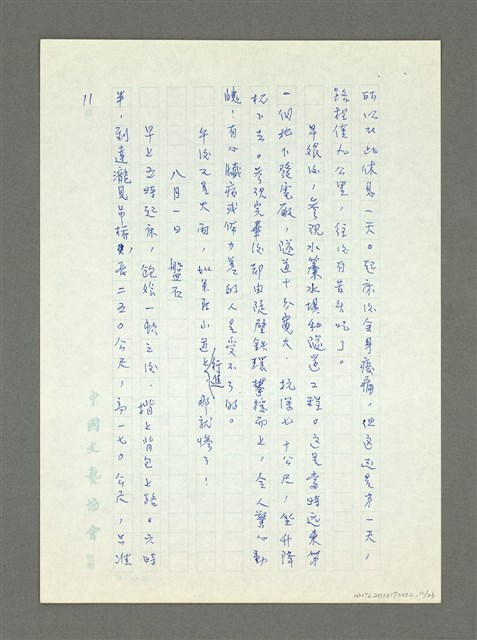 所以在此休息一天。起床後全身痠痛,但這還是第一天,
路程僅九公里,往後有苦頭吃了。
早餐後,參觀水簾水壩和隧道工程。這是當時远東第
一個地下發電廠,隧道十分寬大.坑深七十公尺,坐升降
梯下去。參觀完畢後却由陡壁鉄環攀援而上,令人驚心動
魄!有心臟病或体力差的人是受不了的。
午後又是大雨,如果在山道上行進那就慘了!
八月一日 盤石
早上五時起床,飽餐一頓之後.揹上背包上路。六時
半,到達瀧見吊橋,長二五〇公尺,高一七〇公尺,只准
11
中國文藝協會
NMTL20110170002_11/25